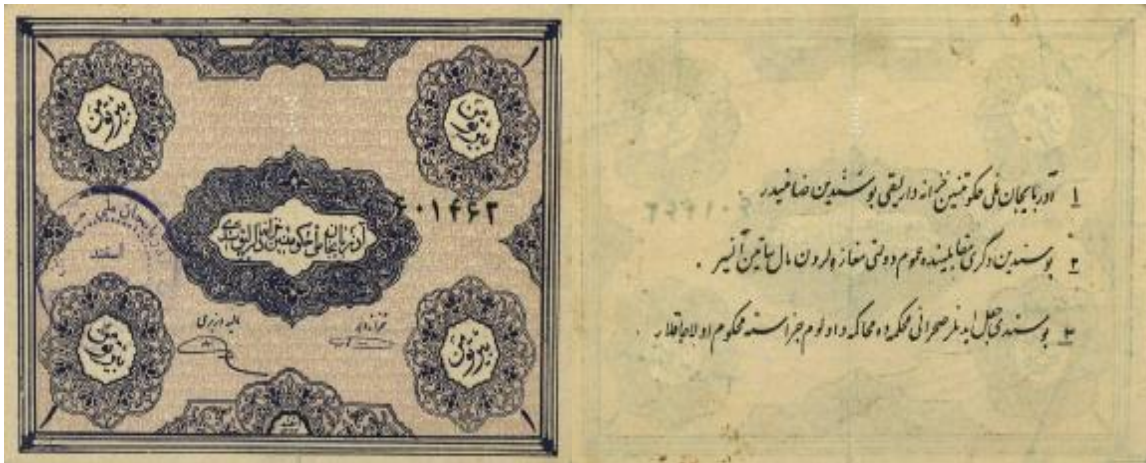 بیر تومن
۶۰۱۴۶۲
آذربایجان ملی حکومتنین خزانه دارلیقی سندی
آذربایجان ملی
اسفند
مالیه وزیری
خزانه دار
بیر تومن
۱ آذربایجان ملی حکومتنین خزانه دارلیقی بوسندین ضامنیدر
۲ بوسندین دگری مقابلینده عموم دولتی مغازه لردن مال ساتین آلنیر .
۳ بوسندی جعل ایدنلر صحرائی محکمه ده محاکمه و اولوم جزاسنه محکوم اولاجاقلار .